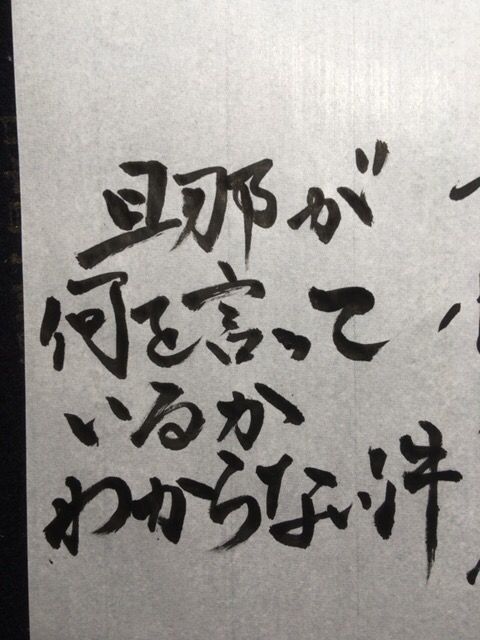 旦那が
何を言って
いるか
わからない件